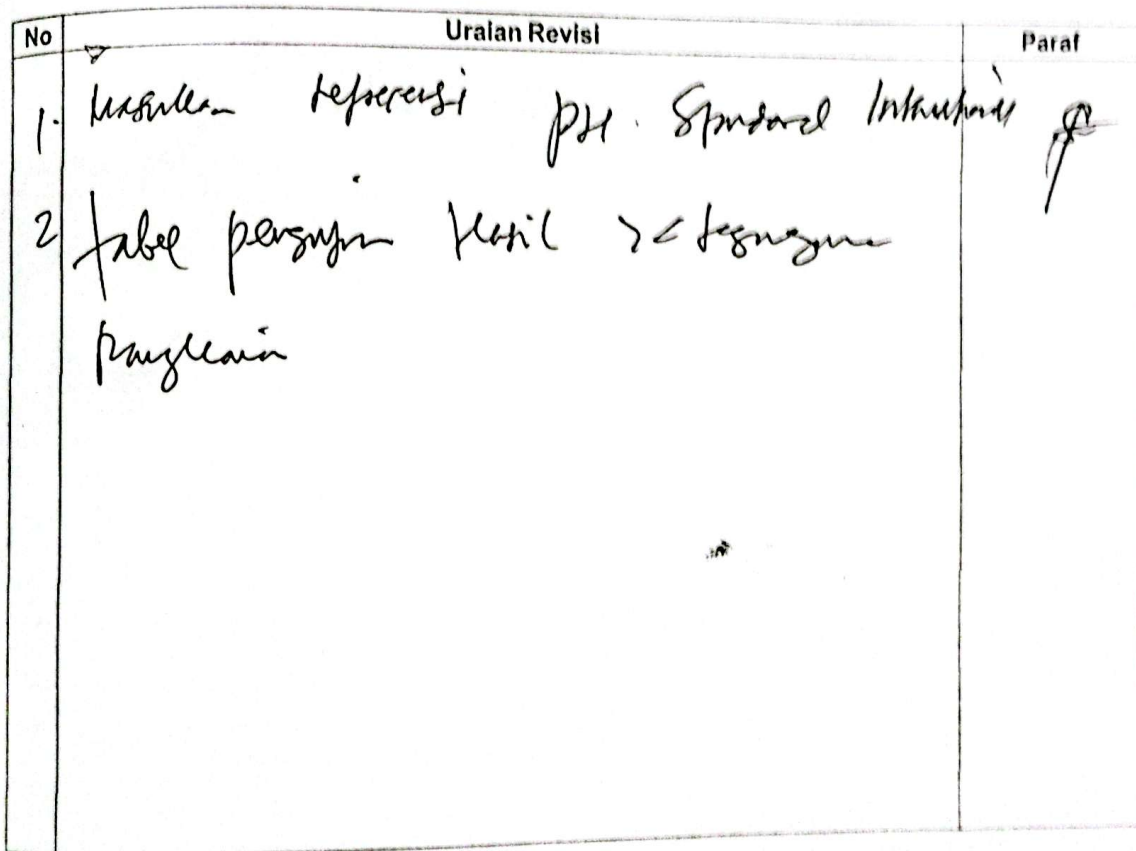 No Uraian Revisi Paraf
1. Masukkan referensi pH. Standard
2 tabel pengujian Hasil >< tegangan
rangkaian